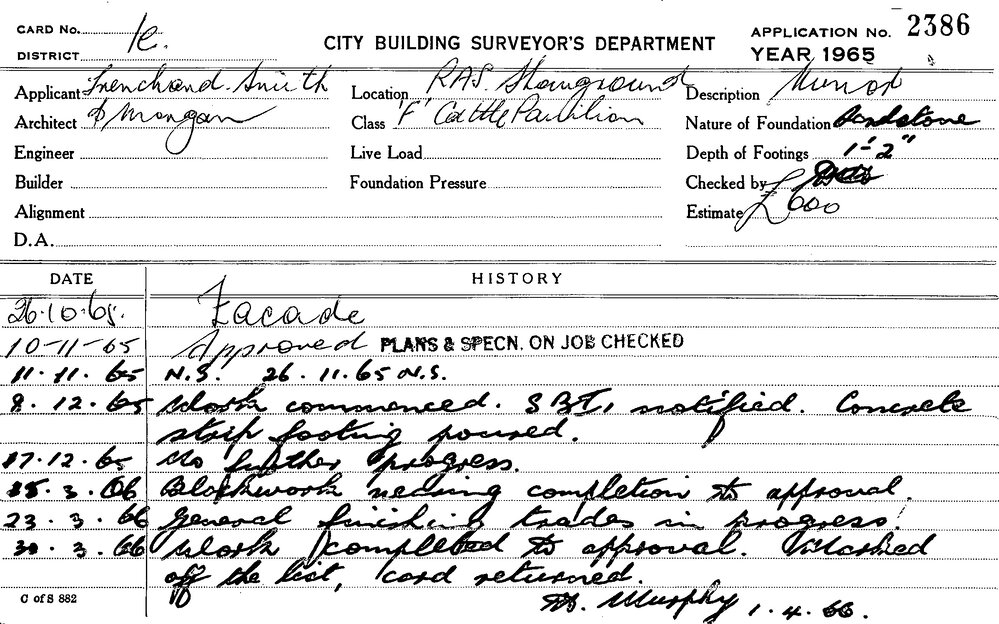 CARD No. 1c.
DISTRICT
CITY BUILDING SURVEYOR'S DEPARTMENT
APPLICATION No. 2386
YEAR 1965
Applicant Trenchard Smith
Location RAS. Showground
Description Minor
Architect & Morgan
Class 'F' Cattle Pavilion
Nature of Foundation Sandstone
Engineer
Live Load
Depth of Footings 1'-2"
Builder
Foundation Pressure
Checked by
Alignment
Estimate £600
D.A.
DATE HISTORY
26.10.65. Facade
10-11-65 Approved PLANS & SPECN. ON JOB CHECKED
11.11.65 N.S. 26.11.65 N.S.
8.12.65 Work commenced. S.B.I. notified. Concrete
strip footing poured.
17.12.65 No further progress.
15.3.66 Blockwork nearing completion to approval.
23.3.66 General finishing trades in progress.
30.3.66 Work completed to approval. Marked
off the list, card returned.
C of S 882
Murphy 1.4.66.